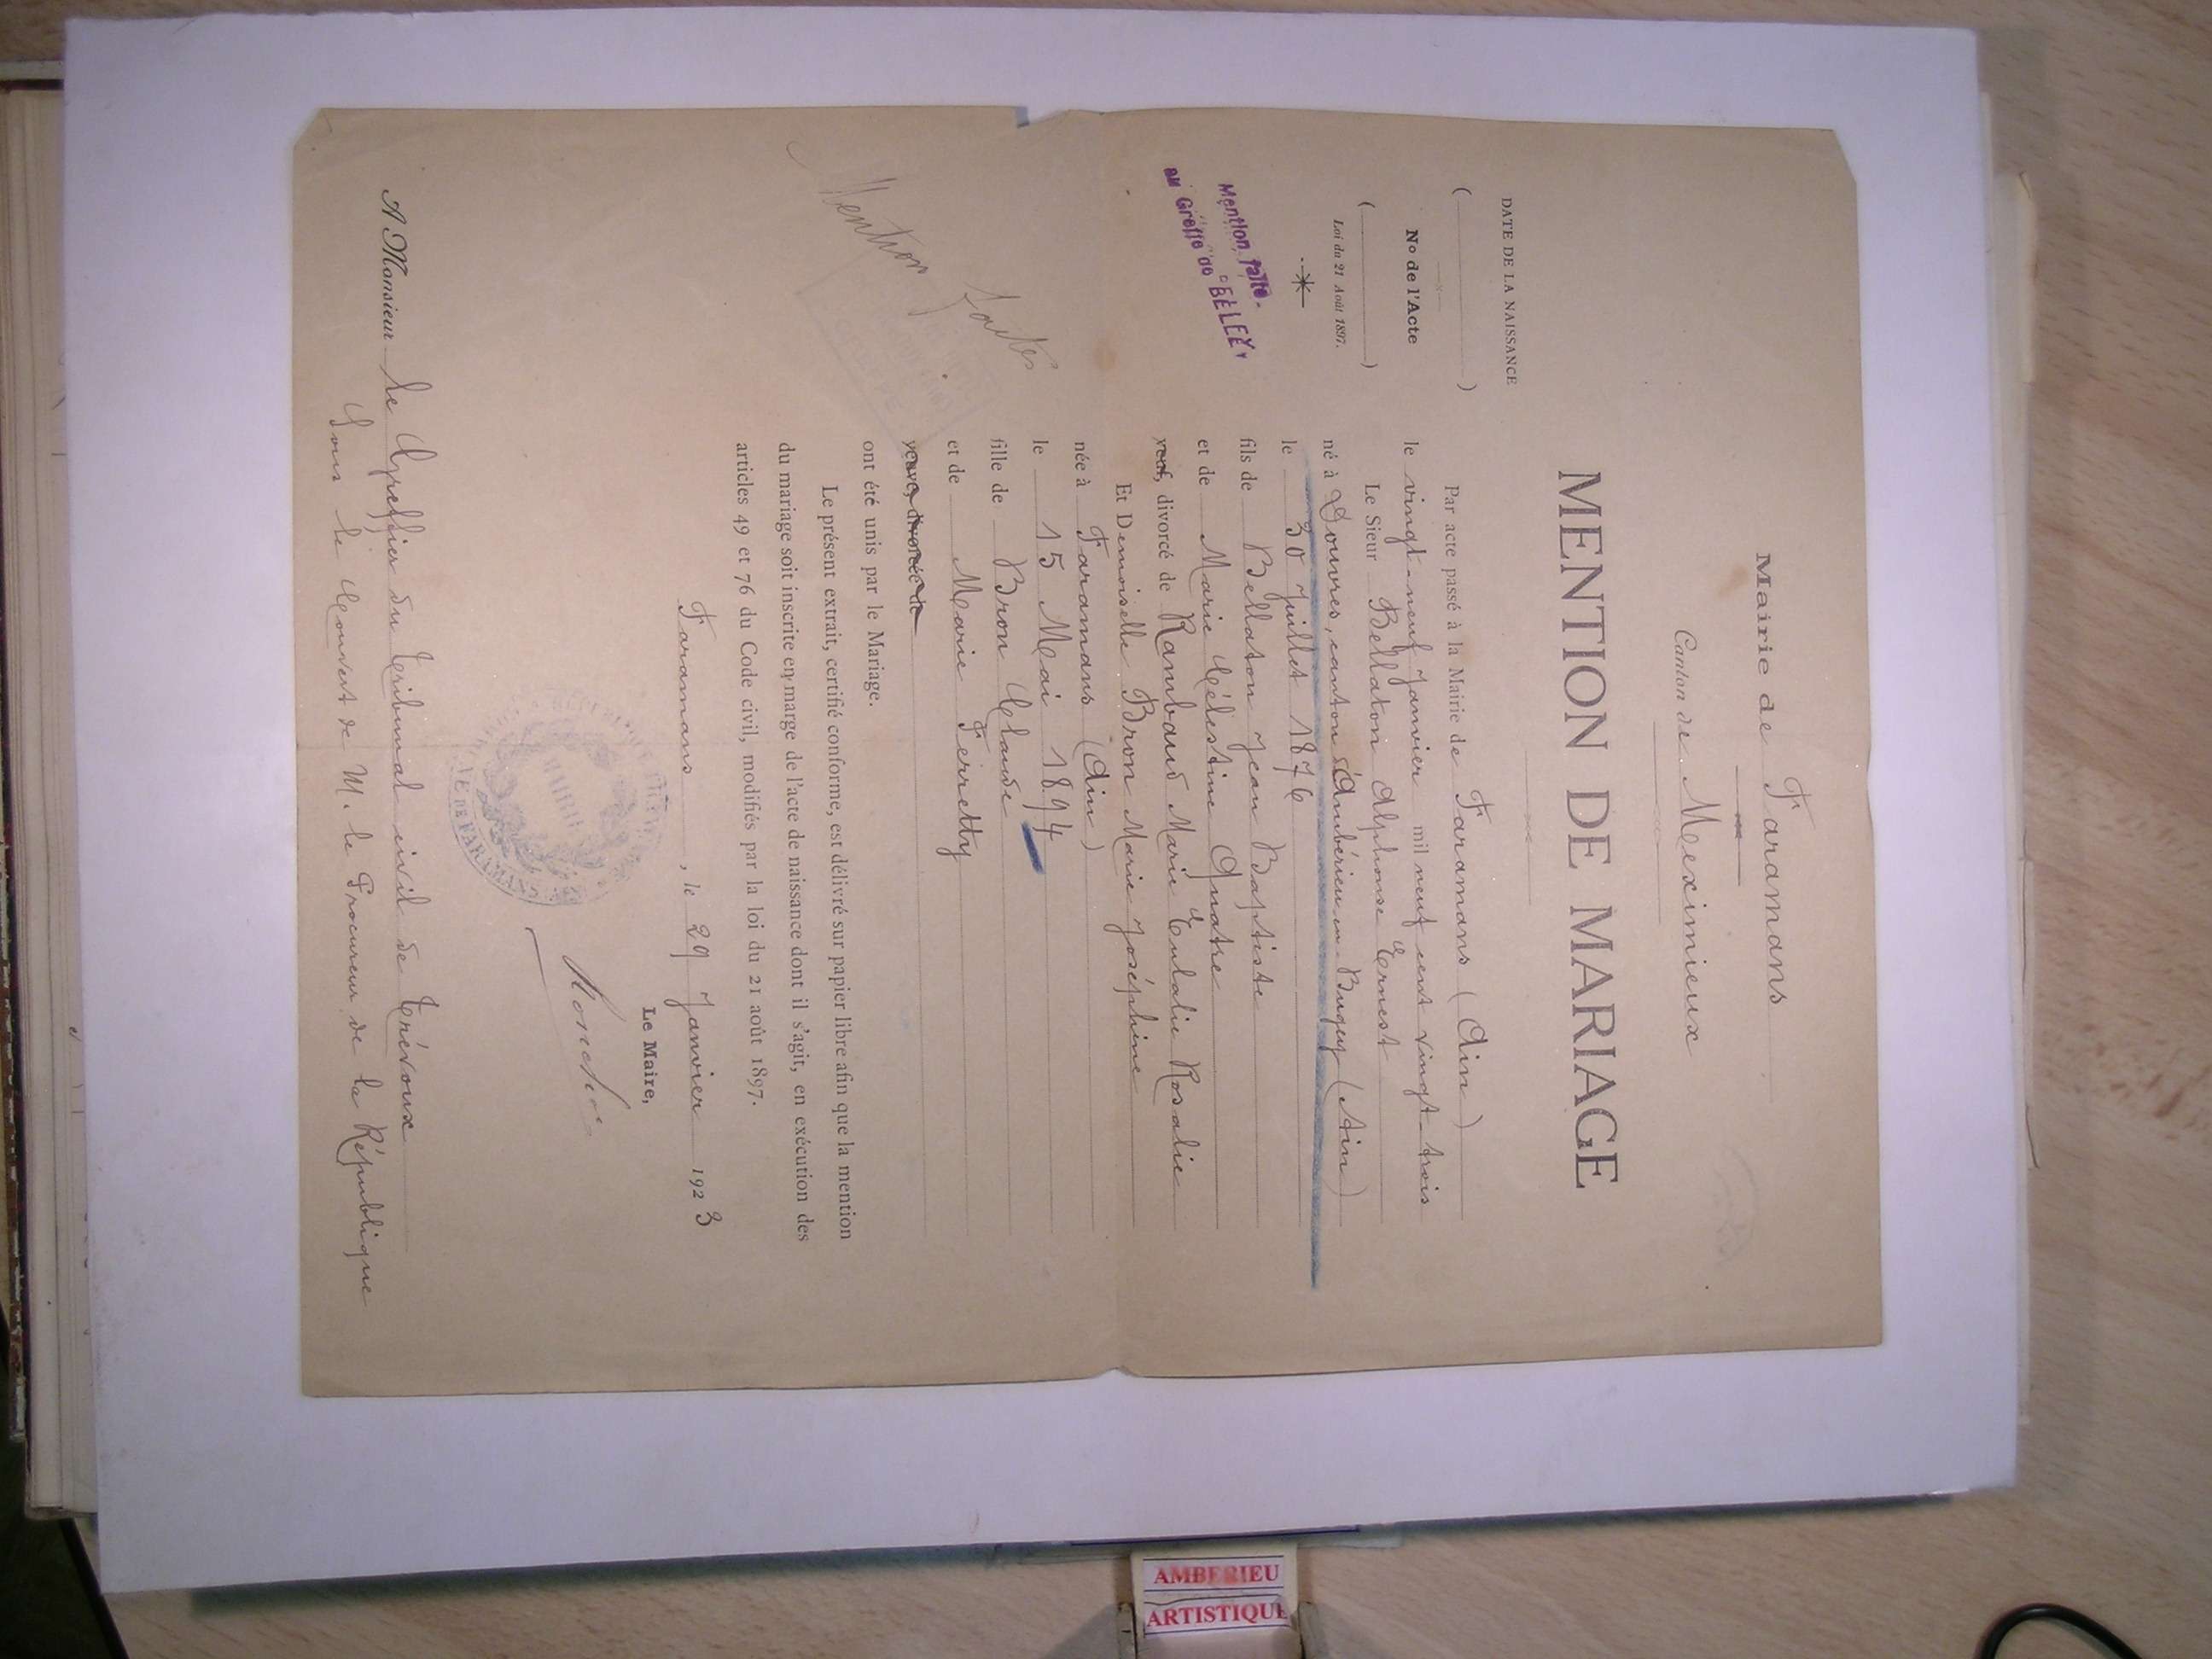 Mairie de Faramans
Canton de Meximieux
MENTION DE MARIAGE
DATE DE LA NAISSANCE
( )
No de l'Acte
( )
Loi du 21 Août 1897.
Mention faite
au Greffe de BELLEY
Mention faite
Par acte passé à la Mairie de Faramans (Ain)
le vingt-neuf Janvier mil neuf cent vingt-trois
Le Sieur Bellaton Alphonse Ernest
né à Douvres, canton d'Ambérieu-en-Bugey (Ain)
le 30 Juillet 1876
fils de Bellaton Jean Baptiste
et de Marie Célestine Quatre
veuf, divorcé de Rambaud Marie Eulalie Rosalie
Et Demoiselle Bron Marie Joséphine
née à Faramans (Ain)
le 15 Mai 1894
fille de Bron Claude
et de Marie Ferretty
veuve, divorcée de
ont été unis par le Mariage.
Le présent extrait, certifié conforme, est délivré sur papier libre afin que la mention
du mariage soit inscrite en marge de l'acte de naissance dont il s'agit, en exécution des
articles 49 et 76 du Code civil, modifiés par la loi du 21 août 1897.
Faramans, le 29 Janvier 1923
Le Maire,
MAIRIE
DE FARAMANS
A Monsieur le Greffier du Tribunal civil de Trévoux
Sous le Couvert de M. le Procureur de la République
AMBERIEU
ARTISTIQUE